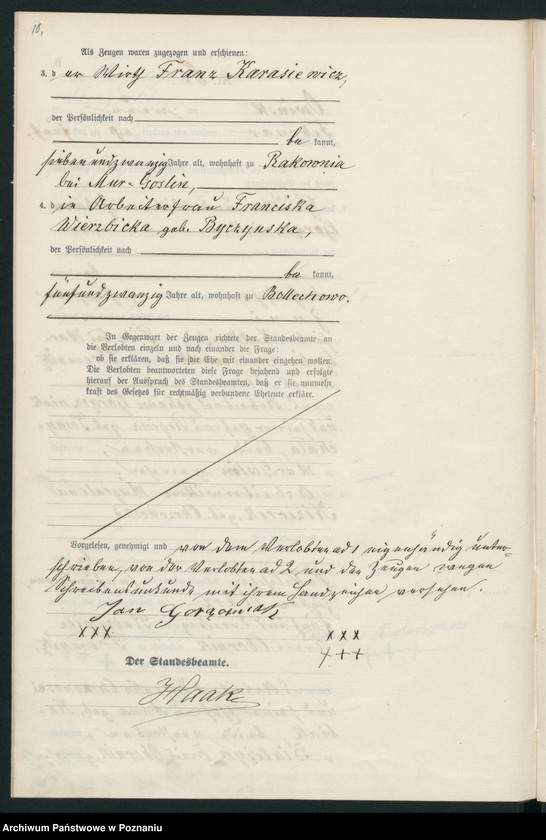 10.
Als Zeugen waren zugezogen und erschienen:
3. der Wirth Franz Karasiewicz,
der Persönlichkeit nach
be kannt,
siebenundzwanzig Jahre alt, wohnhaft zu Rakownia
bei Mur-Goslin,
4. die Arbeiterfrau Franciska
Wierzbicka geb. Byczynska,
der Persönlichkeit nach
be kannt,
fünfundzwanzig Jahre alt, wohnhaft zu Bollechowo.
In Gegenwart der Zeugen richtete der Standesbeamte an
die Verlobten einzeln und nach einander die Frage:
ob sie erklären, daß sie die Ehe mit einander eingehen wollen.
Die Verlobten beantworteten diese Frage bejahend und erfolgte
hierauf der Ausspruch des Standesbeamten, daß er sie nunmehr
kraft des Gesetzes für rechtmäßig verbundene Eheleute erkläre.
Vorgelesen, genehmigt und von dem Verlobten ad 1 eigenhändig unter-
schrieben, von der Verlobten ad 2 und den Zeugen wegen
Schreibensunkunde mit ihrem Handzeichen versehen.
Jan
XXX XXX
+++
Der Standesbeamte.
Haak
Archiwum Państwowe w Poznaniu